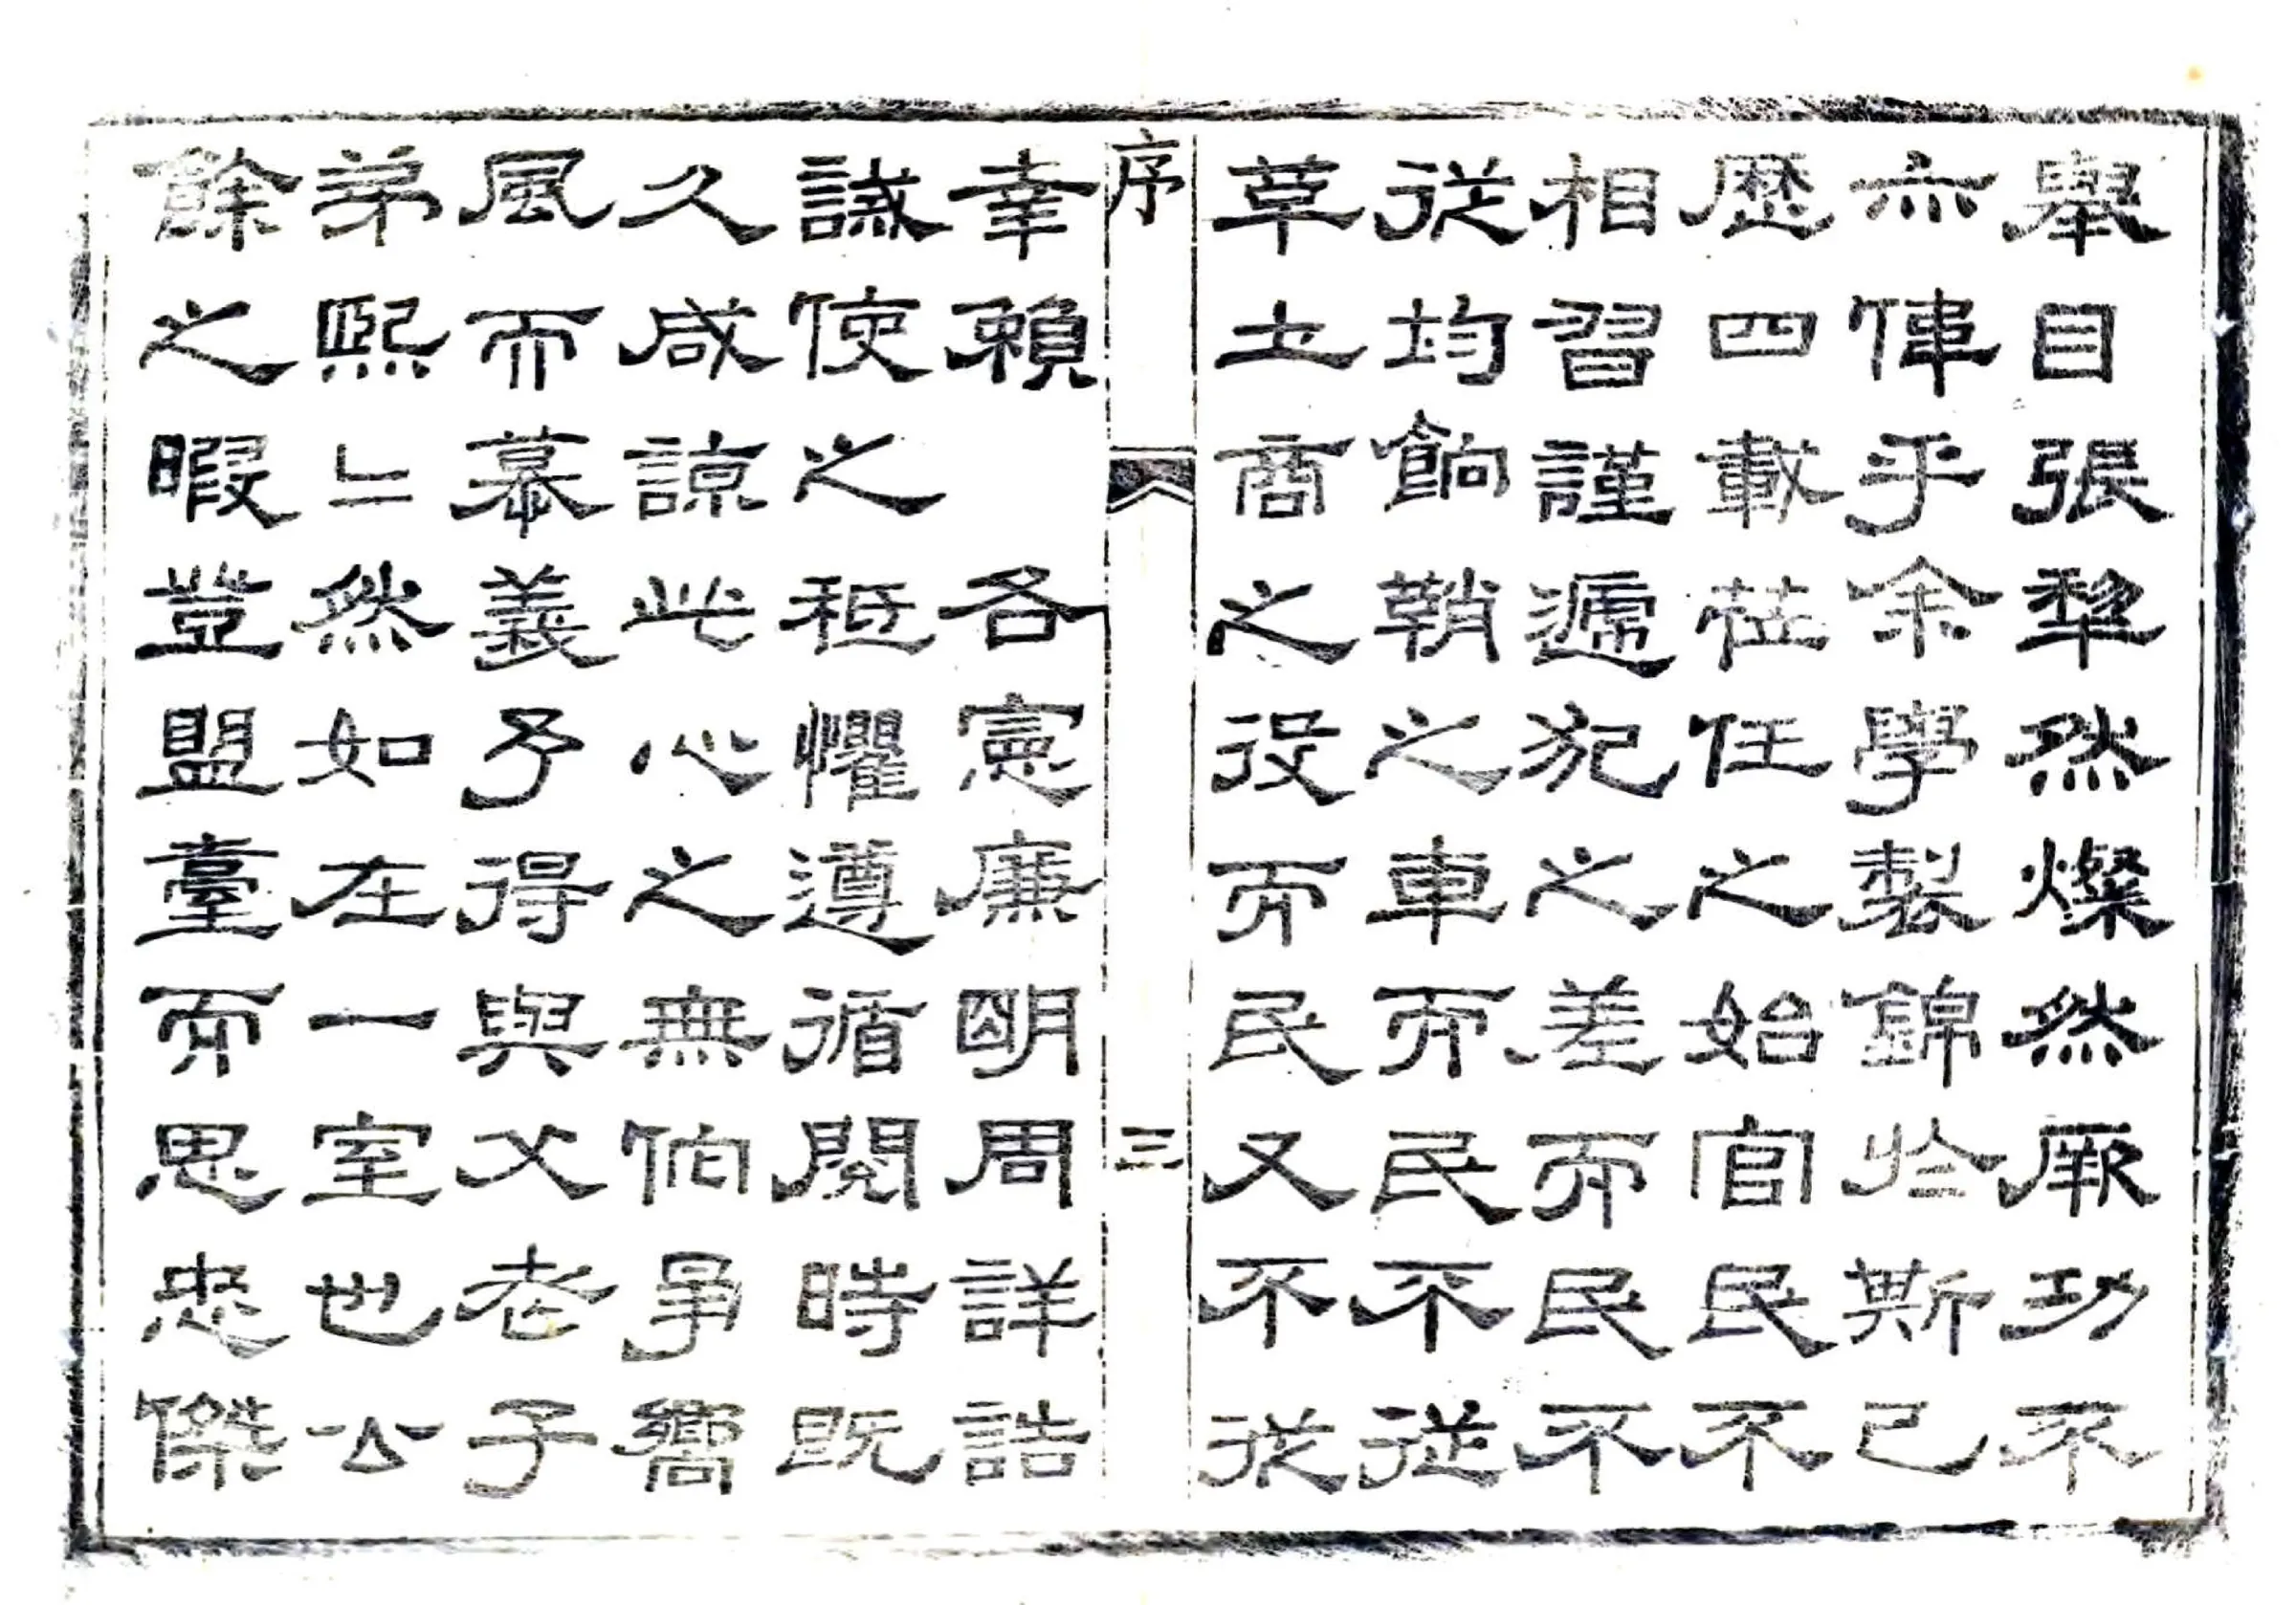 舉目張犂然燦然厥功不
亦偉乎余學製錦於斯已
歷四載莅任之始官民不
相習謹遞犯之差而民不
從均餉鞘之車而民不從
草土商之役而民又不從
序
三
幸賴 各憲廉明周詳誥
誡使之祗懼遵循閱時既
久咸諒此心之無他爭嚮
風而慕義予得與父老子
弟熙〻然如在一室也公
餘之暇登盟臺而思忠傑